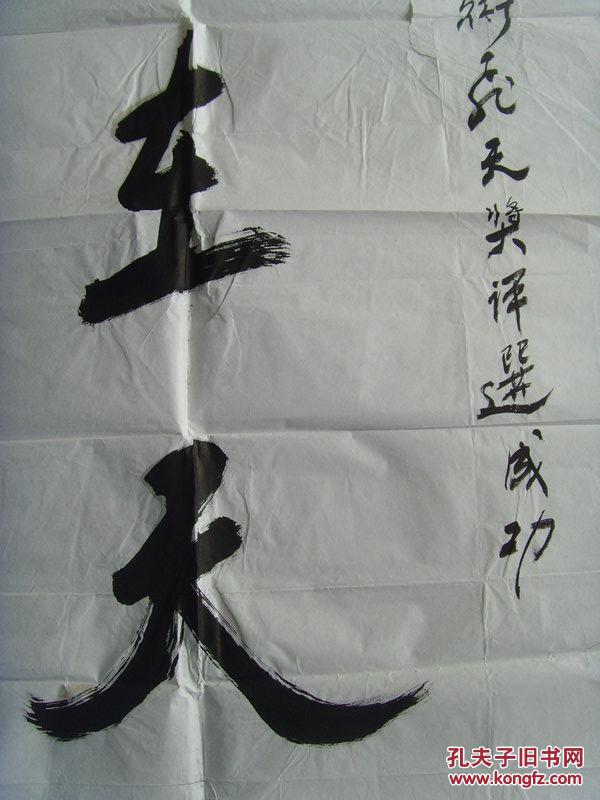 術飛天獎評選成功
在天
孔夫子旧书网
www.kongfz.com